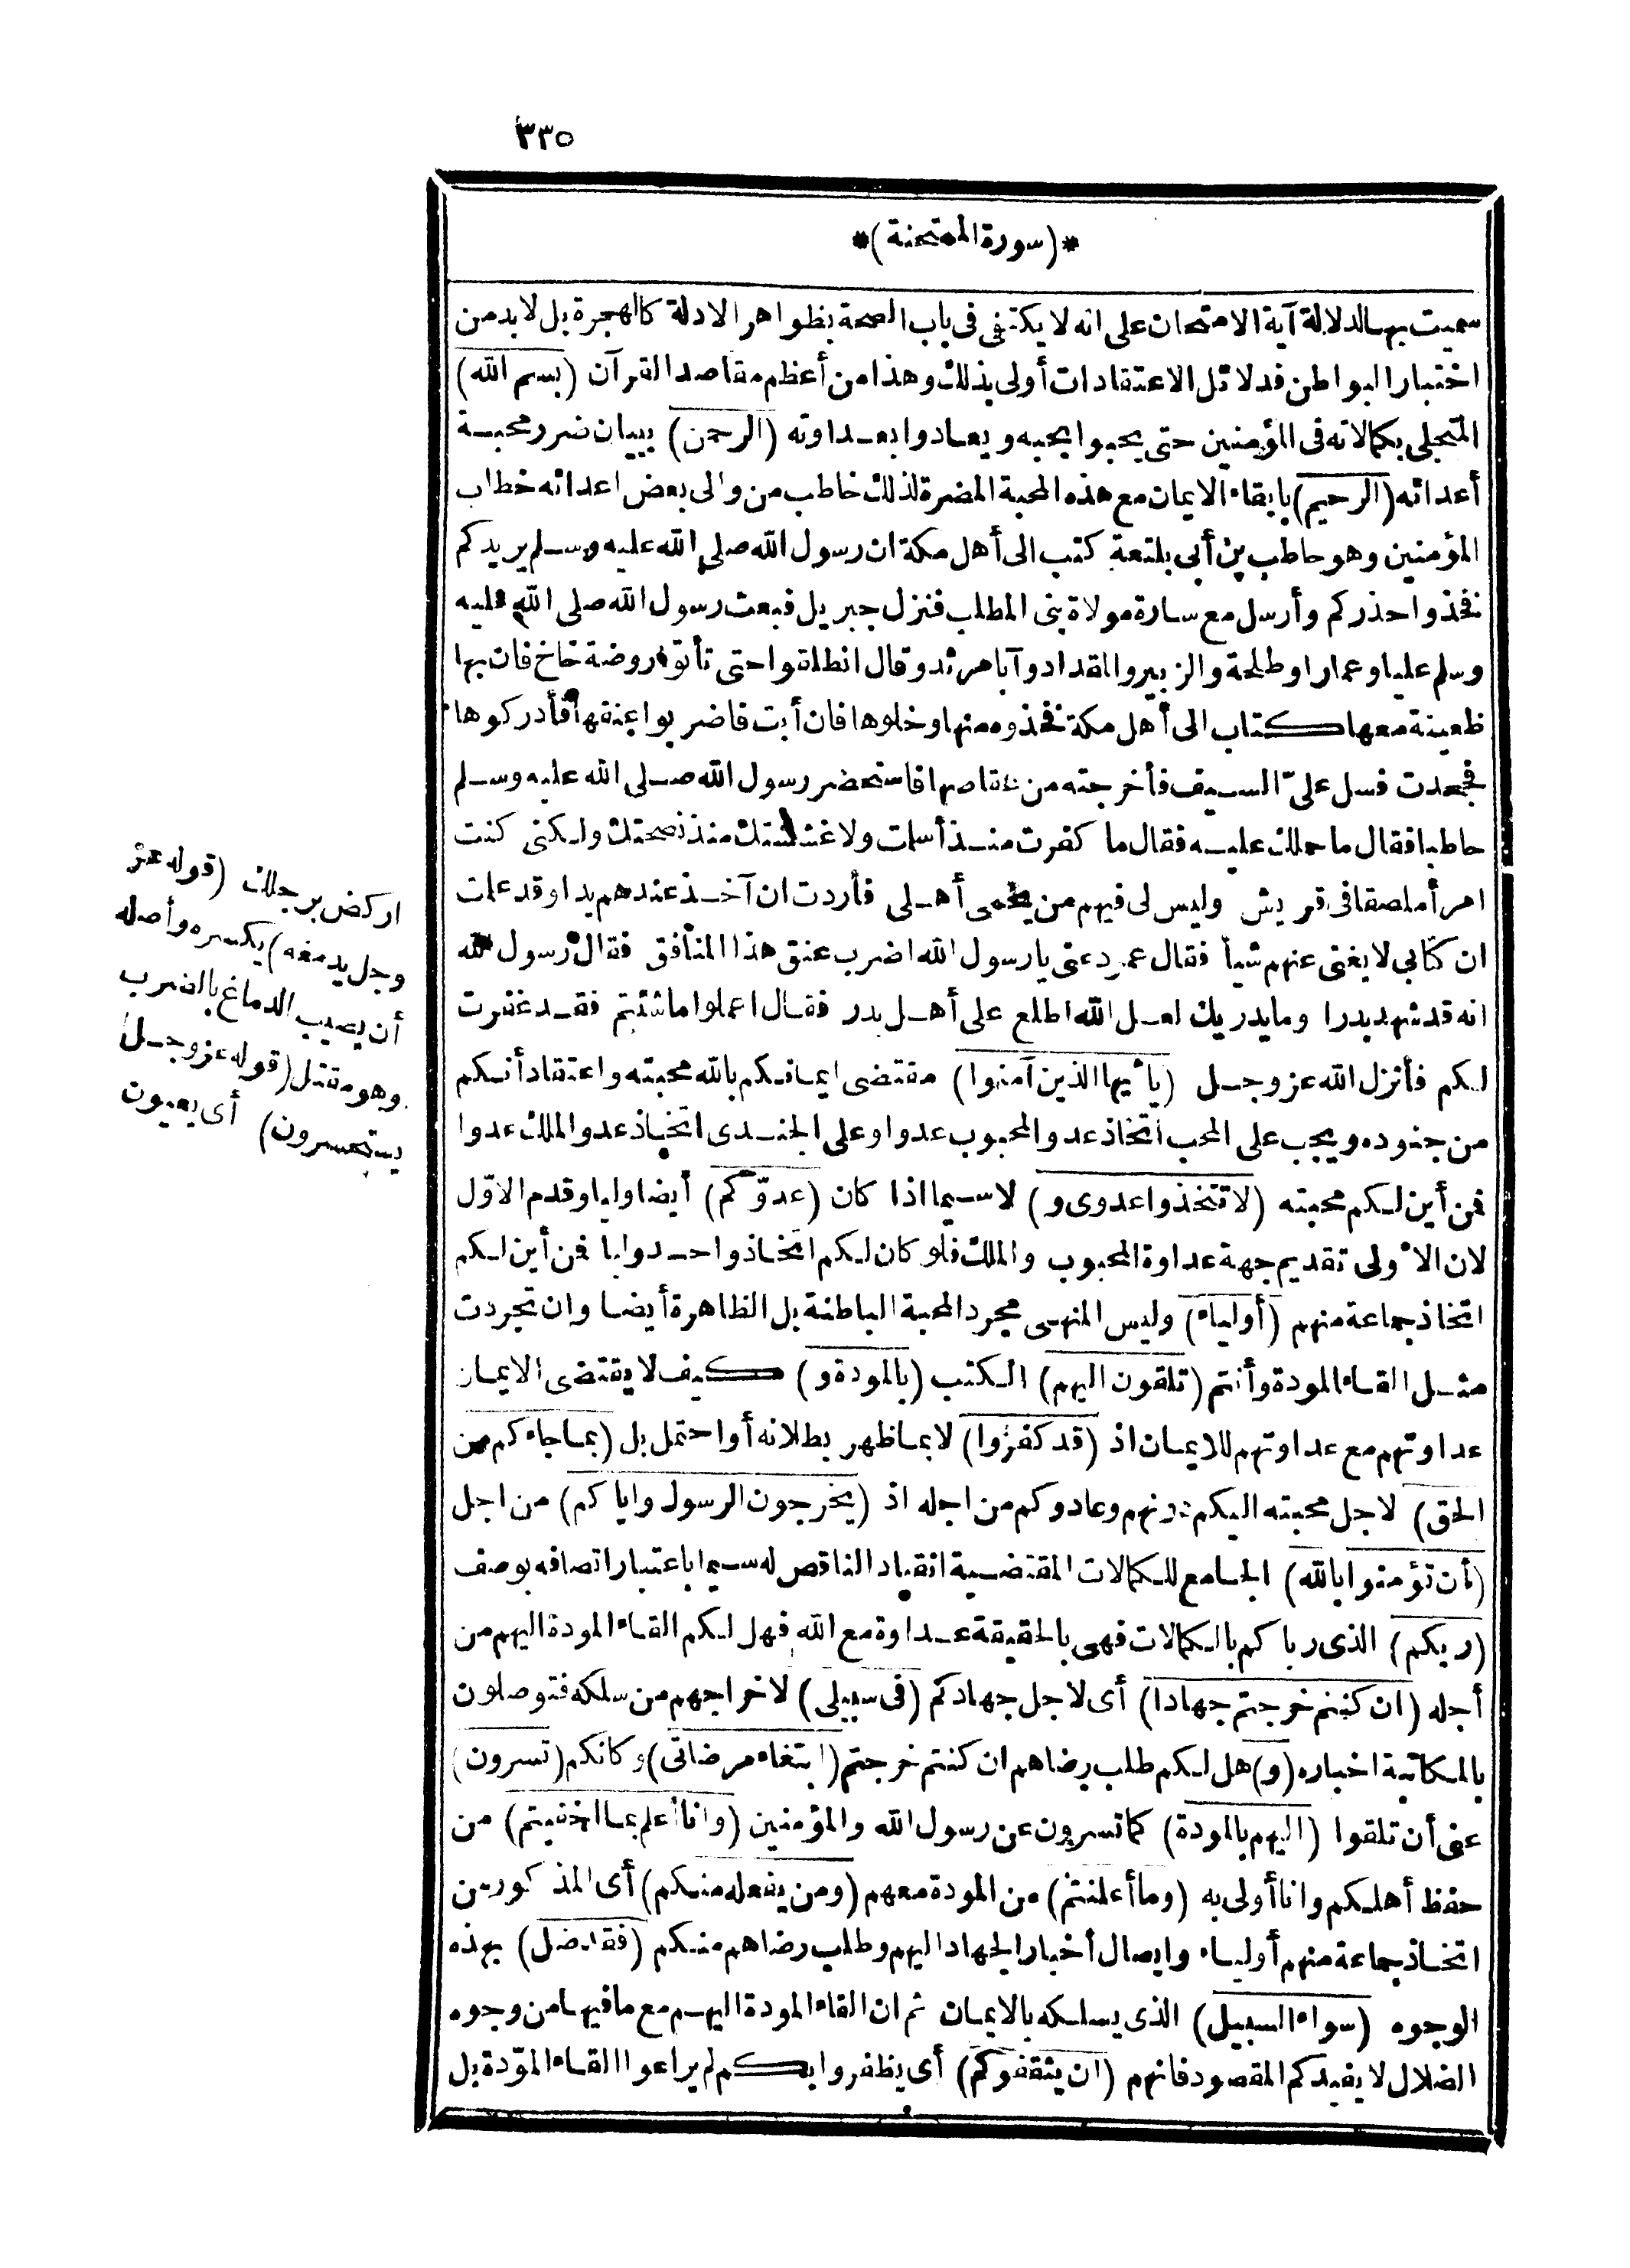 ٣٣٥
*(سورة الممتحنة)*
سميت بها لدلالة آية الامتحان على انه لا يكتفى فى باب الصحة بظواهر الادلة كالهجرة بل لابد من
اختبار البواطن فدلائل الاعتقادات أولى بذلك وهذا من أعظم مقاصد القرآن (بسم الله)
المتجلى بكمالاته فى المؤمنين حتى يحبوا بحبه ويعادوا بعداوته (الرحمن) ببيان ضرر محبة
أعدائه (الرحيم) بابقاء الايمان مع هذه المحبة المضرة لذلك خاطب من والى بعض اعدائه خطاب
المؤمنين وهو حاطب بن أبى بلتعة كتب الى أهل مكة ان رسول الله صلى الله عليه وسلم يريدكم
فخذوا حذركم وأرسل مع سارة مولاة بنى المطلب فنزل جبريل فبعث رسول الله صلى الله عليه
وسلم عليا وعمارا وطلحة والزبير والمقداد وآبا مرثد وقال انطلقوا حتى تأتوا روضة خاخ فان بها
ظعينة معها كتاب الى أهل مكة فخذوه منها وخلوها فان أبت فاضربوا عنقها فأدركوها
فجحدت فسل علىّ السيف فأخرجته من عقاصها فاستحضر رسول الله صلى الله عليه وسلم
حاطبا فقال ما حملك عليه فقال ما كفرت منذ أسلمت ولا غششتك منذ نصحتك ولكنى كنت
امرأ ملصقا فى قريش وليس لى فيهم من يحمى أهلى فأردت ان آخذ عندهم يدا وقد علمت
ان كتابى لا يغنى عنهم شيأ فقال عمر دعنى يا رسول الله اضرب عنق هذا المنافق فقال رسول الله
انه قد شهد بدرا وما يدريك لعل الله اطلع على أهل بدر فقال اعملوا ما شئتم فقد غفرت
لكم فأنزل الله عز وجل (يأيها الذين آمنوا) مقتضى ايمانكم بالله محبته واعتقاد أنكم
من جنوده ويجب على المحب اتخاذ عدو المحبوب عدوا وعلى الجندى اتخاذ عدو الملك عدوا
فمن أين لكم محبته (لا تتخذوا عدوى و) لاسيما اذا كان (عدوّكم) أيضا وليا وقدم الاوّل
لان الاولى تقديم جهة عداوة المحبوب والملك فلو كان لكم اتخاذ واحد وليا فمن أين لكم
اتخاذ جماعة منهم (أولياء) وليس المنهى مجرد المحبة الباطنة بل الظاهرة أيضا وان تجردت
مثل القاء المودة وأنتم (تلقون اليهم) الكتب (بالمودة و) كيف لا يقتضى الايمان
عداوتهم مع عداوتهم للايمان اذ (قد كفروا) لا بما ظهر بطلانه أو احتمل بل (بما جاءكم من
الحق) لاجل محبته اليكم دونهم وعادوكم من اجله اذ (يخرجون الرسول واياكم) من اجل
(أن تؤمنوا بالله) الجامع للكمالات المقتضية انقياد الناقص له سيما باعتبار اتصافه بوصف
(ربكم) الذى رباكم بالكمالات فهى بالحقيقة عداوة مع الله فهل لكم القاء المودة اليهم من
أجله (ان كنتم خرجتم جهادا) أى لاجل جهادكم (فى سبيلى) لاخراجهم من سلكه فتوصلون
بالمكاتبة اخباره (و) هل لكم طلب رضاهم ان كنتم خرجتم (ابتغاء مرضاتى) وكانكم (تسرون)
عنى أن تلقوا (اليهم بالمودة) كما تسرون عن رسول الله والمؤمنين (وانا أعلم بما اخفيتم) من
حفظ أهلكم وانا أولى به (وما أعلنتم) من المودة معهم (ومن يفعله منكم) أى المذكورين
اتخاذ جماعة منهم أولياء وايصال أخبار الجهاد اليهم وطلب رضاهم منكم (فقد ضل) بهذه
الوجوه (سواء السبيل) الذى يسلكه بالايمان ثم ان القاء المودة اليهم مع ما فيها من وجوه
الضلال لا يفيدكم المقصود فانهم (ان يثقفوكم) أى يظفروا بكم لم يراعوا القاء المودّة بل
اركض برجلك (قوله عز
وجل يدمغه) يكسره وأصله
أن يصيب الدماغ بالضرب
وهو مقتل (قوله عز وجل
يستحسرون) أى يعيون